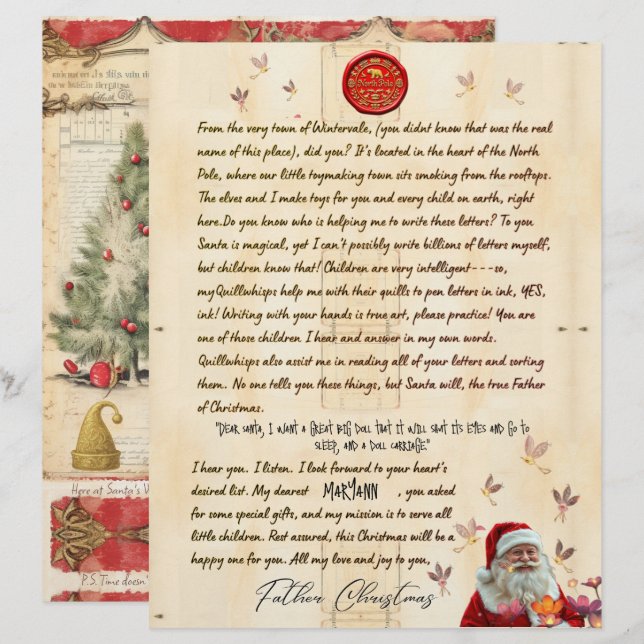 North Pole
From the very town of Wintervale, (you didnt know that was the real
name of this place), did you? It's located in the heart of the North
Pole, where our little toymaking town sits smoking from the rooftops.
The elves and I make toys for you and every child on earth, right
here.Do you know who is helping me to write these letters? To you
Santa is magical, yet I can't possibly write billions of letters myself,
but children know that! Children are very intelligent---so,
myQuillwhisps help me with their quills to pen letters in ink, YES,
ink! Writing with your hands is true art, please practice! You are
one of those children I hear and answer in my own words.
Quillwhisps also assist me in reading all of your letters and sorting
them. No one tells you these things, but Santa will, the true Father
of Christmas.
"Dear Santa, I want a great big doll that it will shut its eyes and go to
sleep, and a doll carriage."
I hear you. I listen. I look forward to your heart's
desired list. My dearest MARYANN , you asked
for some special gifts, and my mission is to serve all
little children. Rest assured, this Christmas will be a
happy one for you. All my love and joy to you,
Father Christmas
Here at Santa's V
P.S. Time doesn'